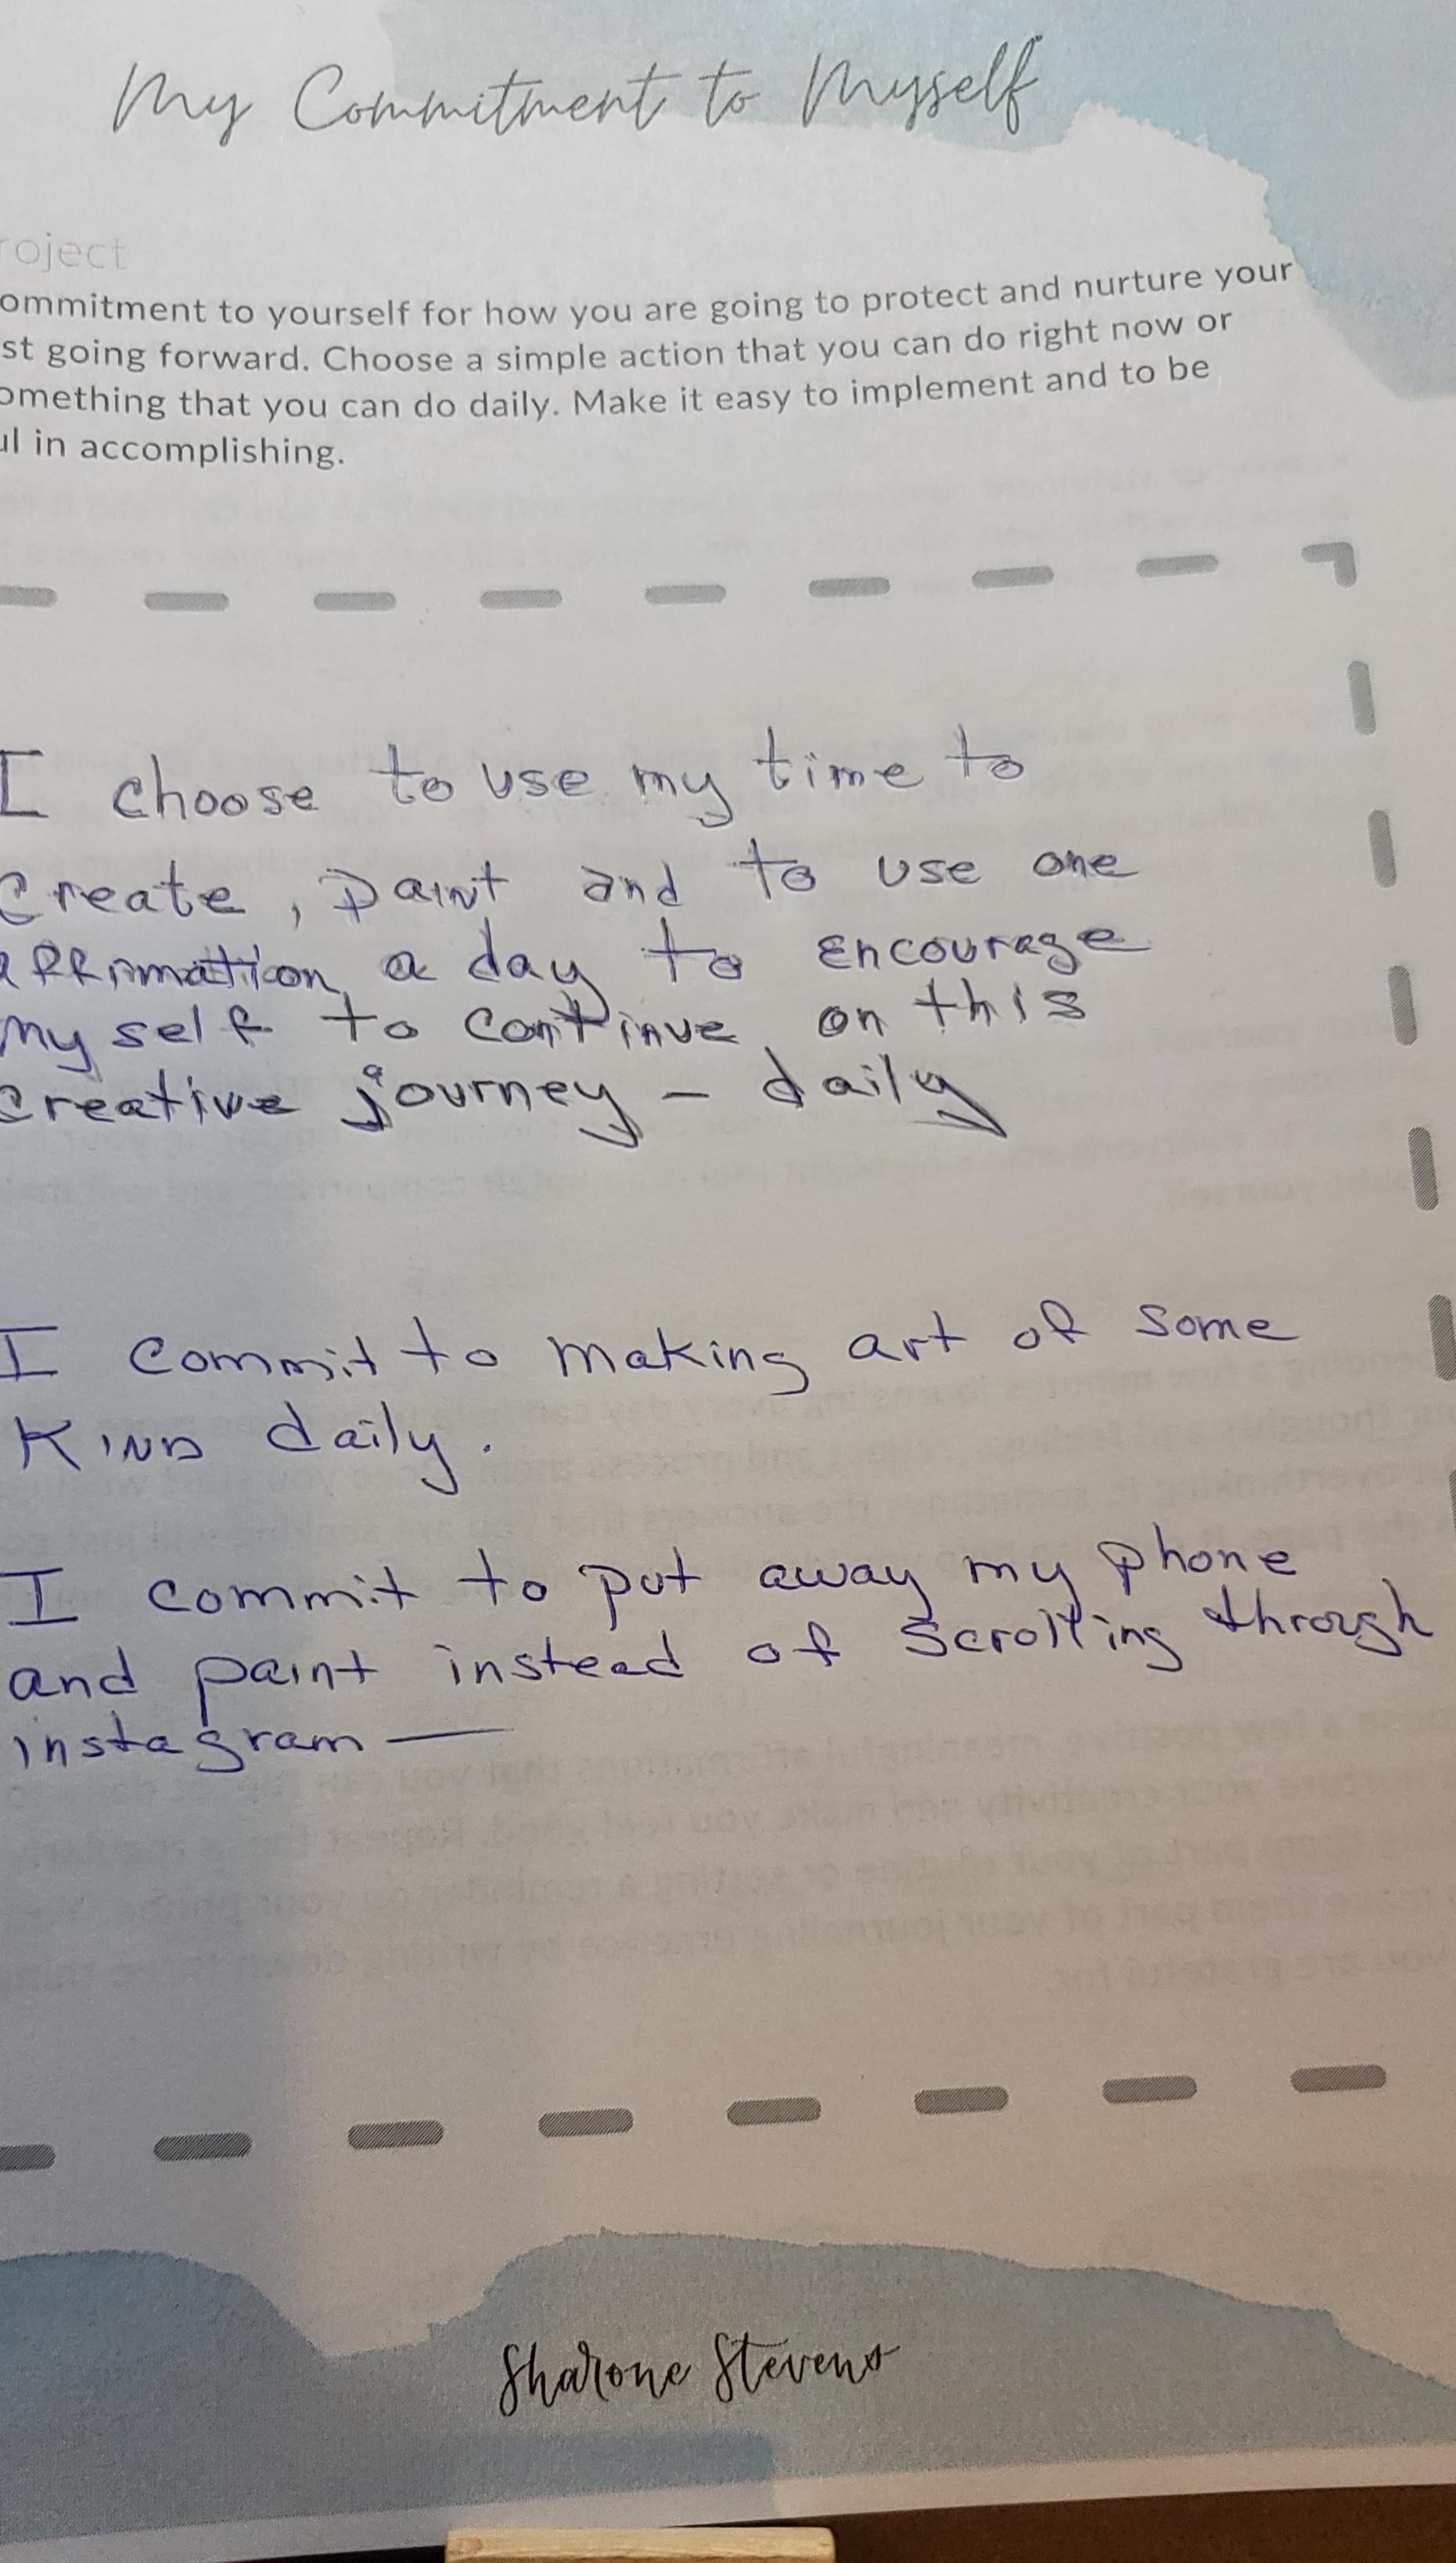 My Commitment to Myself
roject
ommitment to yourself for how you are going to protect and nurture your
st going forward. Choose a simple action that you can do right now or
omething that you can do daily. Make it easy to implement and to be
ul in accomplishing.
I choose to use my time to
Create, paint and to use one
affirmation a day to encourage
my self to continue on this
creative journey — daily
I commit to making art of some
Kind daily.
I commit to put away my phone
and paint instead of scrolling through
instagram —
Sharone Stevens